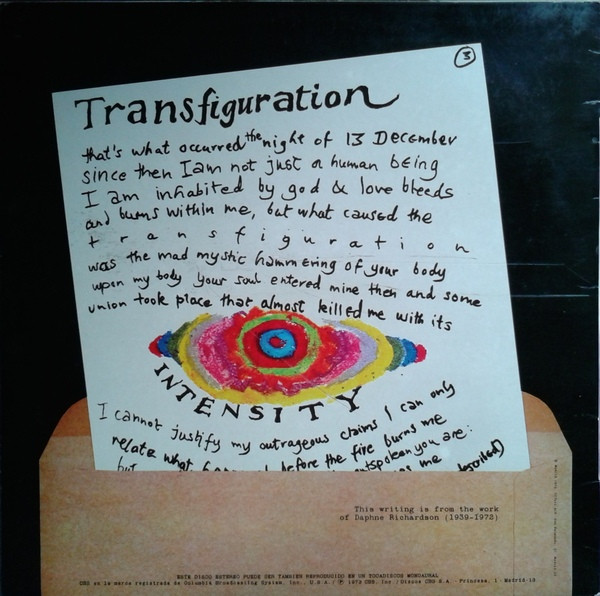 3
Transfiguration
that's what occurred the night of 13 December
since then I am not just a human being
I am inhabited by god & love bleeds
and burns within me, but what caused the
transfiguration
was the mad mystic hammering of your body
upon my body your soul entered mine then and some
union took place that almost killed me with its
INTENSITY
I cannot justify my outrageous claims I can only
relate what before the fire burns me
outspoken you are:
but me described)
This writing is from the work
of Daphne Richardson (1939-1972)
ESTE DISCO ESTEREO PUEDE SER TAMBIEN REPRODUCIDO EN UN TOCADISCOS MONOAURAL
CBS es la marca registrada de Columbia Broadcasting System, Inc., U.S.A./ Ⓟ 1972 CBS, Inc./Discos CBS S.A. - Princesa, 1 - Madrid-18